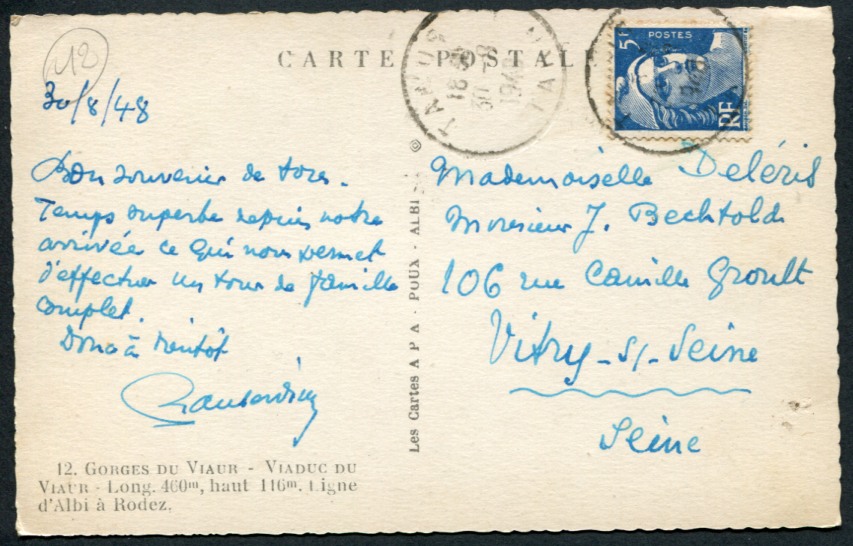 12
CARTE POSTALE
TANUS
18 30
30 -8
1948
TARN
5F
POSTES
RF
30/8/48
Bon souvenir de tous.
Temps superbe depuis notre
arrivée ce qui nous permet
d'effectuer un tour de famille
complet.
Donc à bientôt
Les Cartes A P A - POUX - ALBI
©
Mademoiselle Deléris
Monsieur J. Bechtold
106 rue Camille Groult
Vitry-s/-Seine
Seine
12. GORGES DU VIAUR - VIADUC DU
VIAUR - Long. 460m, haut 116m. Ligne
d'Albi à Rodez.